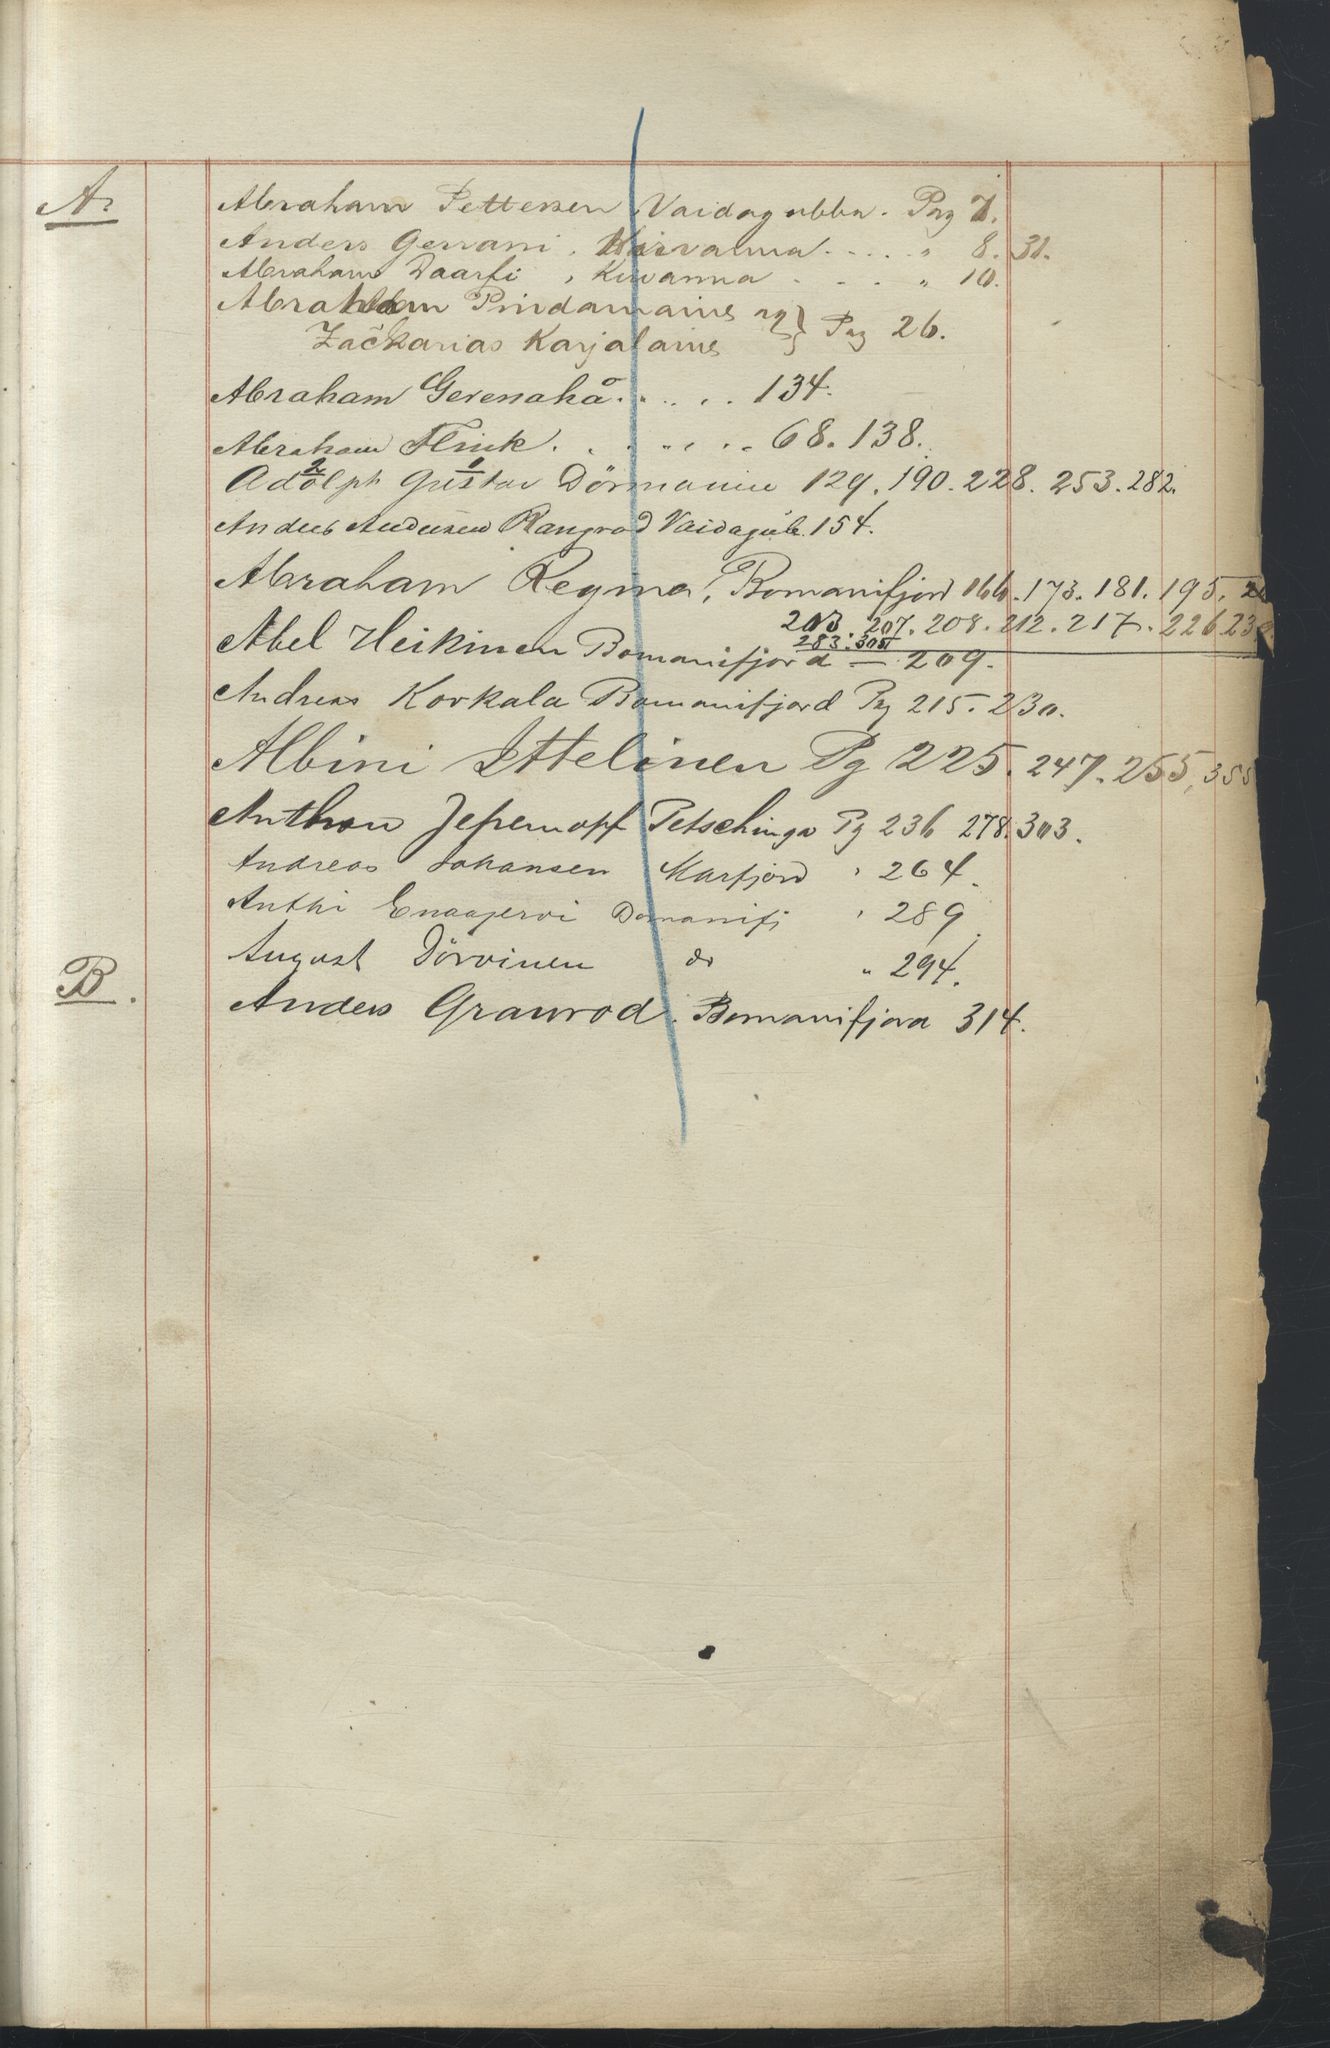 A.
Abraham Pettersen Vaidagubba. Pag 7.
Anders Gerrani, . . . . . " 8. 31.
Abraham Daarfi, Kervanna . . . . " 10.
Abraham Pindamains og } Pag 26.
Zackarias Karjalains
Abraham Gerenahå. . . . . 134.
Abraham Flink. . . . . . . 68. 138.
Adolph 2 Gustav 1 Dörmanin 129. 190. 228. 253. 282.
Anders Andersen Rangrod Vaidagub. 154.
Abraham Regina, Bomanifjord 166. 173. 181. 195.
203. 207. 208. 212. 217. 226. 230.
283. 305
Abel Heikinen Bomanifjord — 209.
Andreas Korkala Bomanifjord Pag 215. 230.
Albini Ittelinen Pg 225. 247. 255, 355
Anthon Petschinga Pg 236 278. 303.
Andreas Johansen Marfjord " 264.
Anthi Enaajervi Bomanifj " 289
August Dörvinen do " 294.
B.
Anders Granrod. Bomanifjord 314.